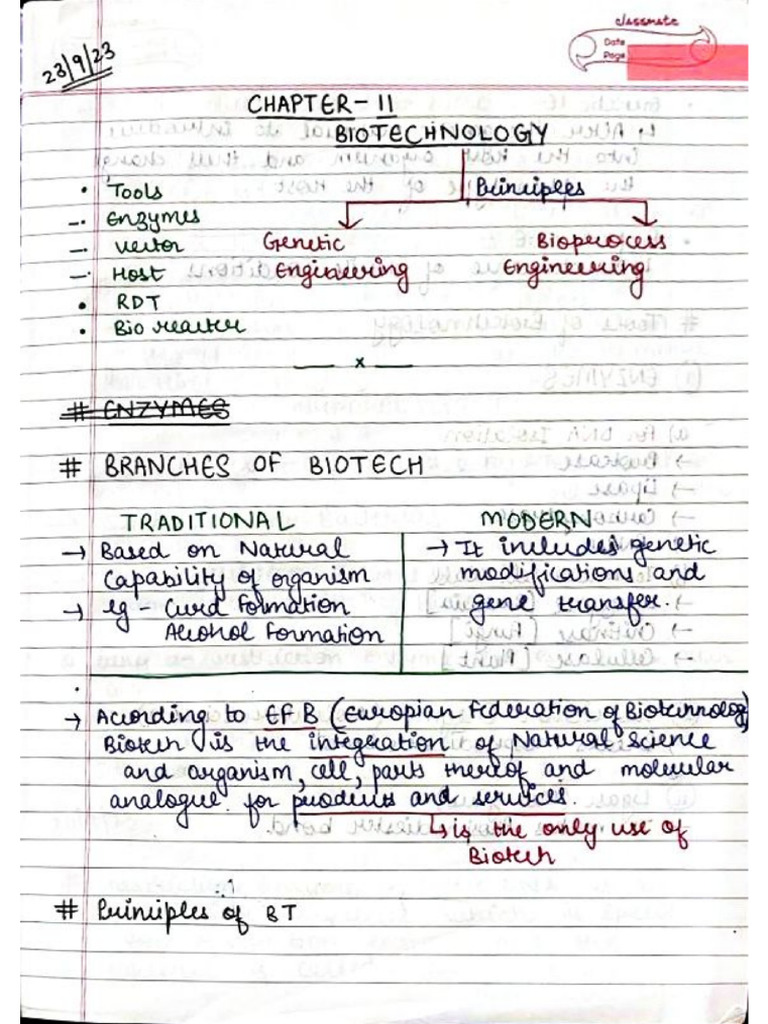 classmate
Date
Page
23/9/23
CHAPTER-11
BIOTECHNOLOGY
• Tools
Principles
- Enzymes
- Vector
Genetic
Bioprocess
- Host
Engineering
Engineering
• RDT
• Bio reactor
— x —
# ENZYMES
# BRANCHES OF BIOTECH
TRADITIONAL
MODERN
→ Based on Natural
Capability of organism
→ eg - Curd Formation
Alcohol Formation
→ It includes genetic
modifications and
gene transfer.
→ According to EFB (Europian Federation of Biotechnology)
Biotech is the integration of Natural Science
and organism, cell, parts thereof and molecular
analogue for products and services.
↳ is the only use of
Biotech
# Principles of BT